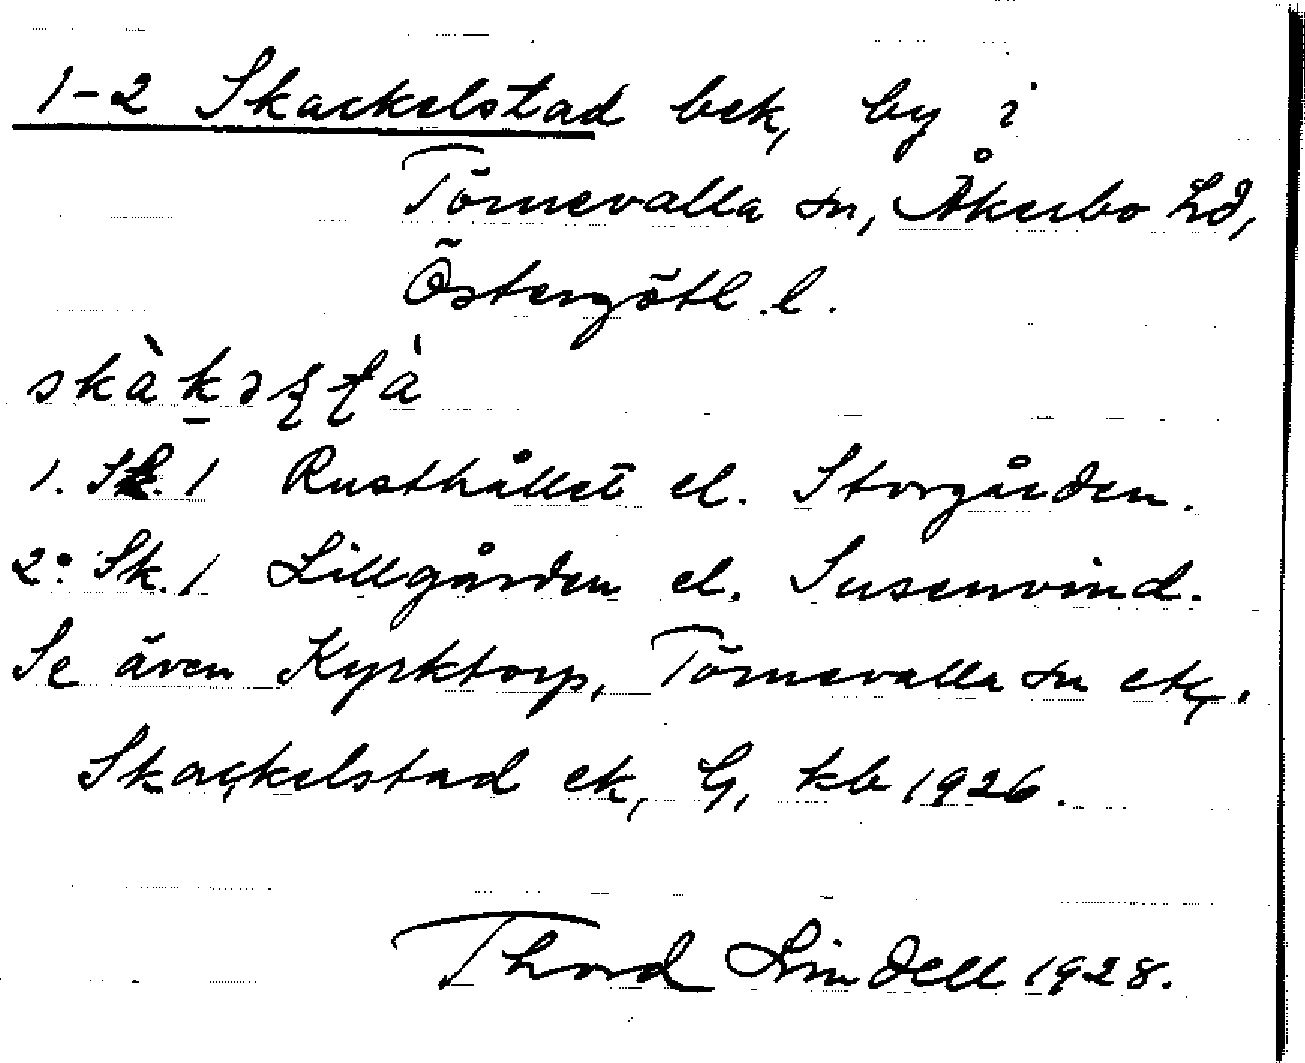 1-2 Skackelstad bek, by i
Törnevalla sn, Åkerbo hd,
Östergötl. l.
1. Sk. 1 Rusthållet el. Storgården.
2: Sk. 1 Lillgården el. Susenvind.
Se även Kyrktorp, Törnevalla sn ek,.
Skackelstad ek, G, kb 1926.
Thord Lindell 1928.